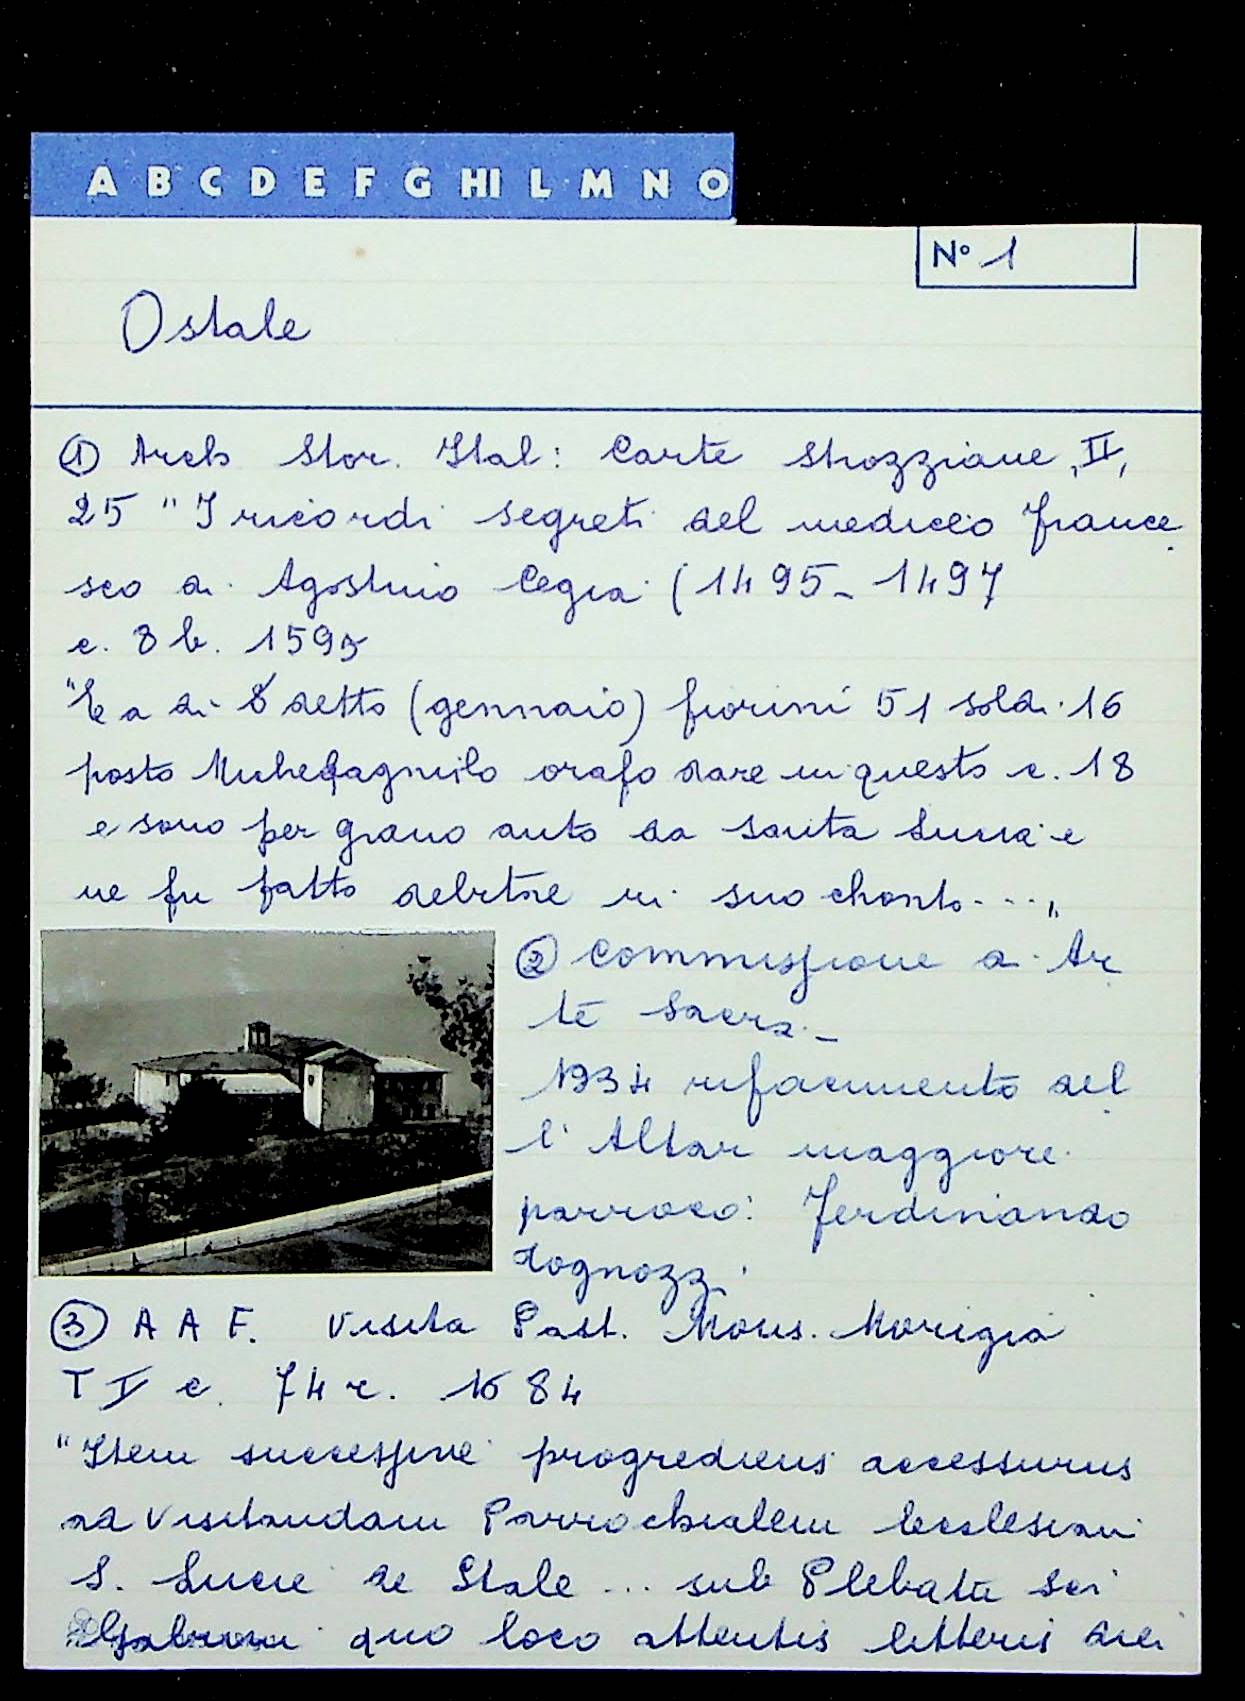 A B C D E F G HI L M N O
N° 1
Ostale
① Arch Stor. Ital: Carte Strozziane, II,
25 "I ricordi segreti del mediceo France
sco di Agostino Cegia (1495-1497
c. 8 b. 1595
"E a di 8 detto (gennaio) fiorini 51 soldi 16
posto orafo dare in questo c. 18
e sono per grano auto da santa Lucia e
ne fu fatto debitore in suo chonto...."
② Commissione di Ar
te Sacra.-
1934 rifacimento del
l'Altar maggiore.
parroco: Ferdinando
Tognozzi
③ A A F. Visita Past. Mons. Morigia
T I c. 74 r. 1684
"Item successive progrediens accessurus
ad visitandam Parrochialem Ecclesiam
S. Lucie de Stale ... sub Plebatu Sci
quo loco attentis litteris